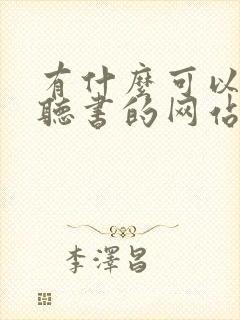 有什麽可以
聽書的网佔
李澤昌